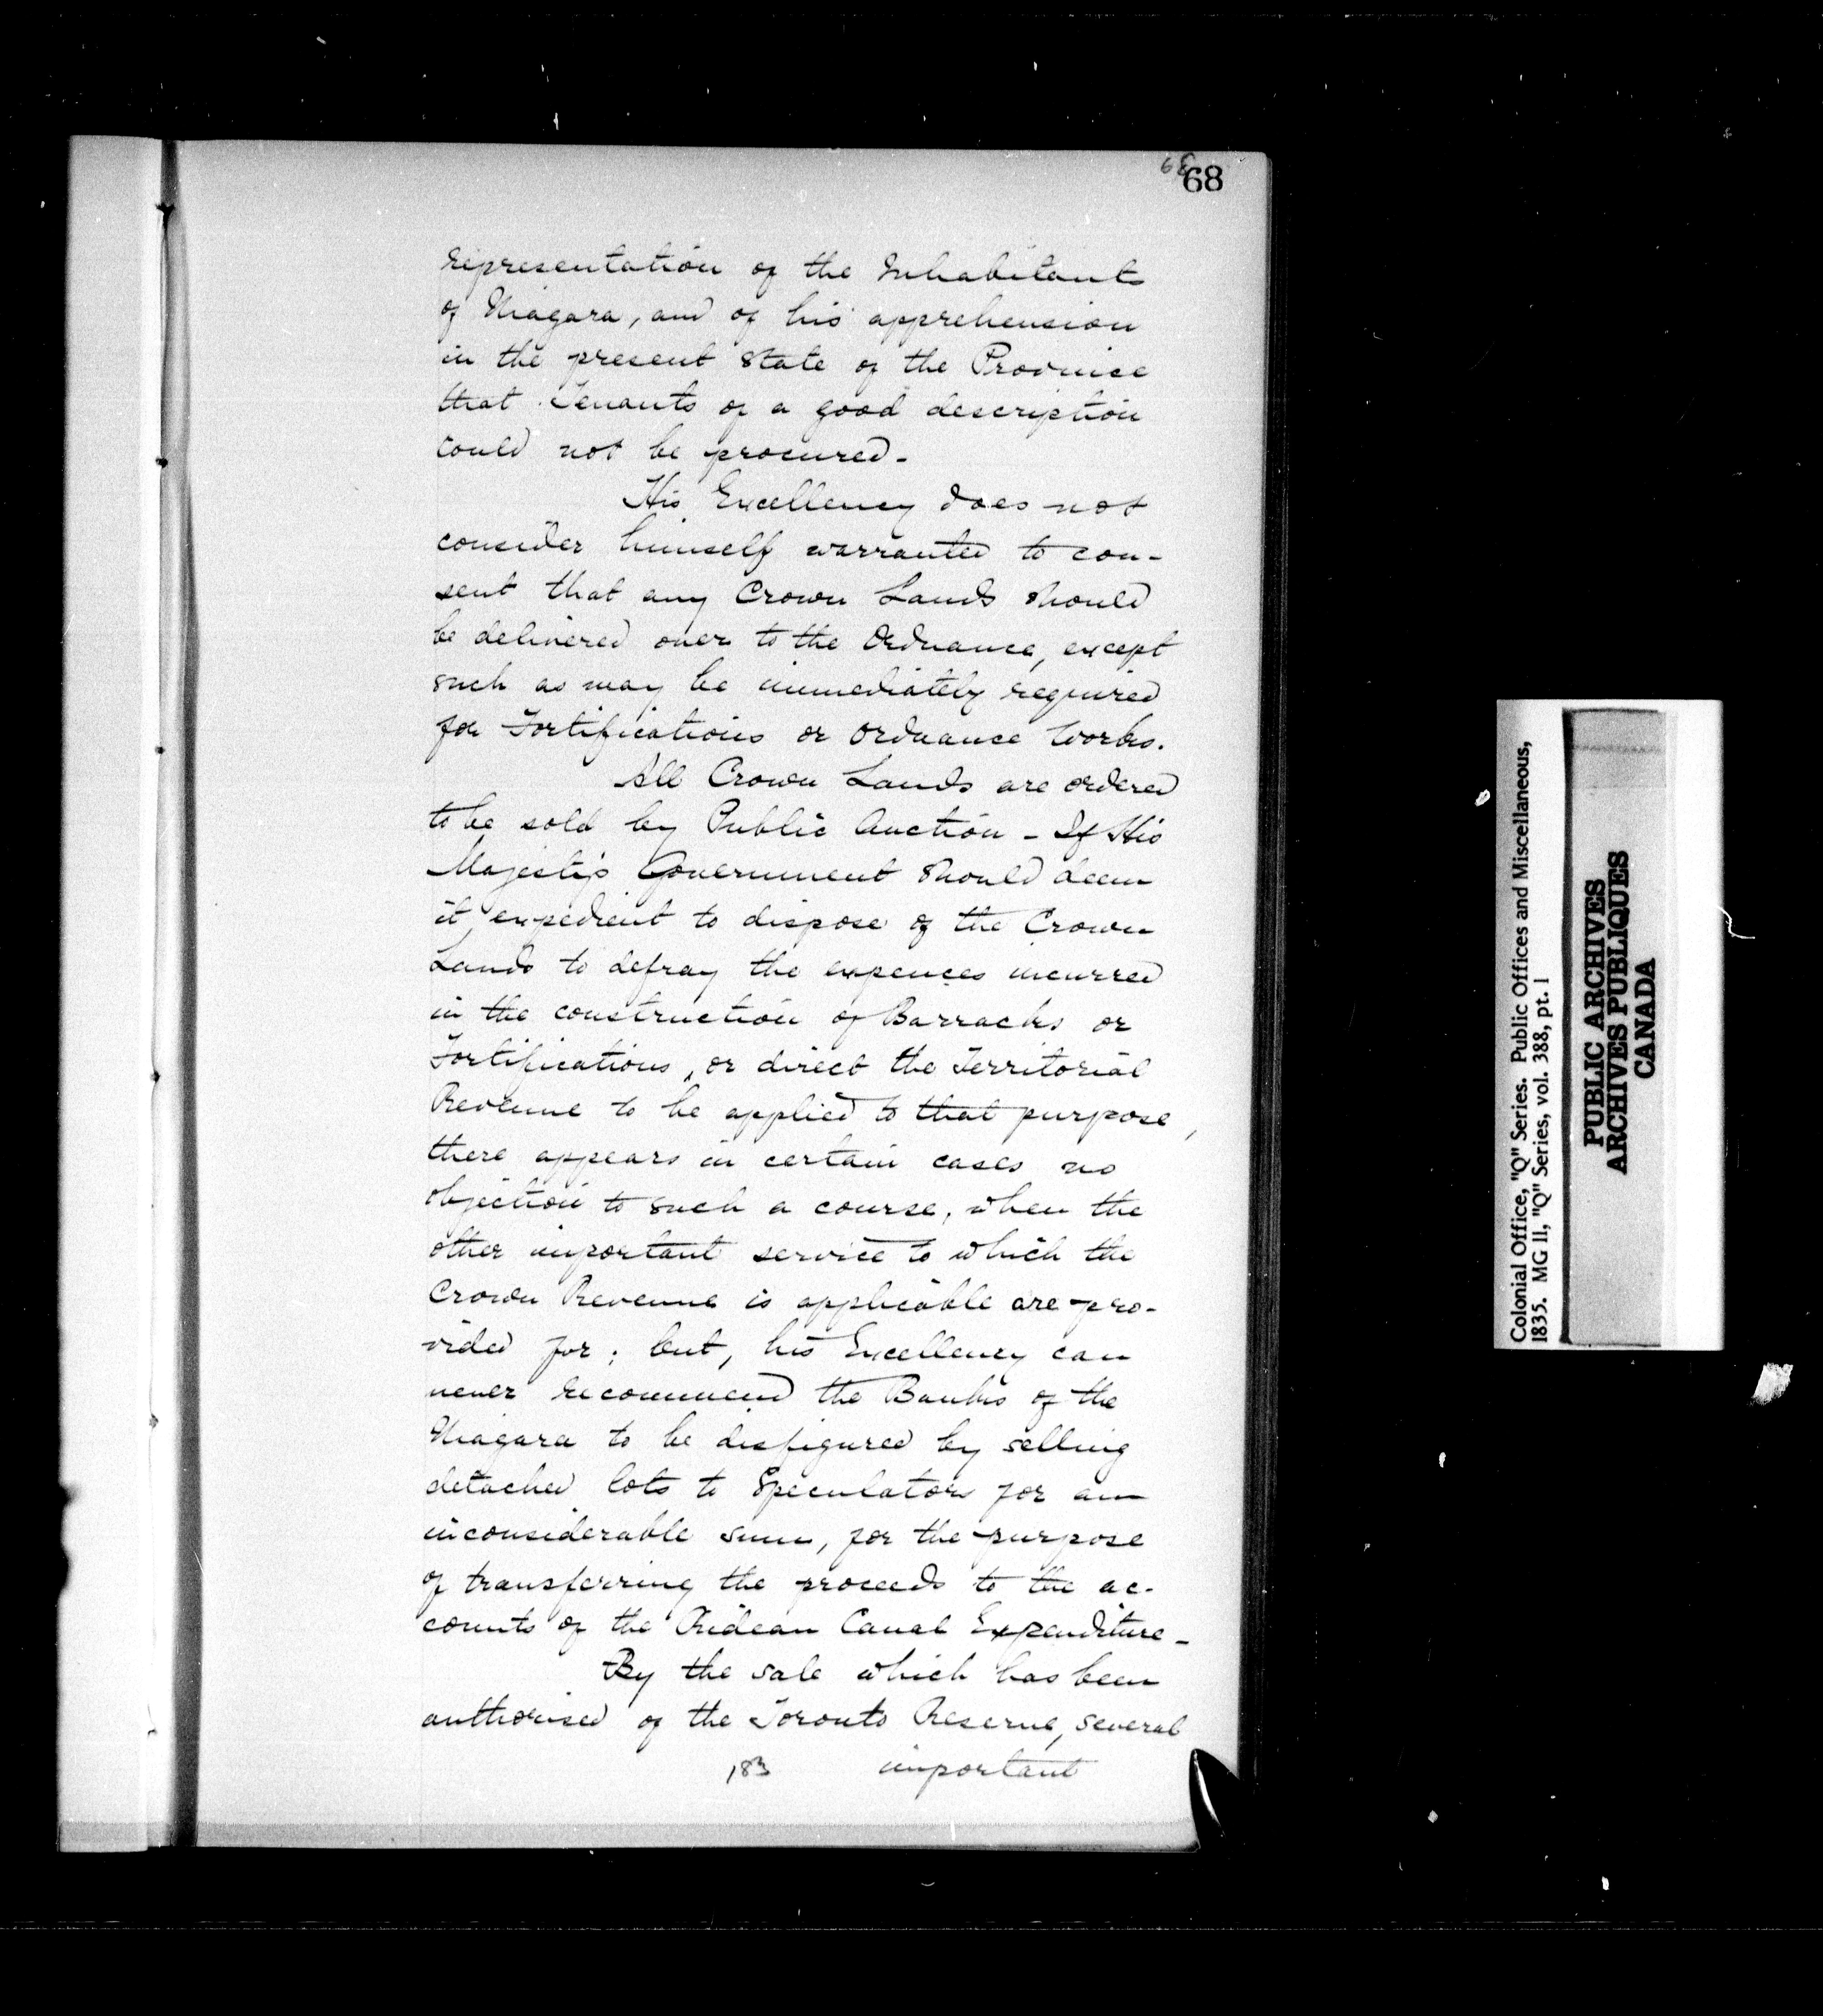 68
representation of the Inhabitants
of Niagara, and of his apprehension
in the present state of the Province
that Tenants of a good description
could not be procured -
His Excellency does not
consider himself warranted to con-
sent that any Crown Lands should
be delivered over to the Ordnance, except
such as may be immediately required
for Fortifications or Ordnance Works.
All Crown Lands are ordered
to be sold by Public Auction - If His
Majesty's Government should deem
it expedient to dispose of the Crown
Lands to defray the expences incurred
in the construction of Barracks or
Fortifications, or direct the Territorial
Revenue to be applied to that purpose,
there appears in certain cases no
objection to such a course, when the
other important service to which the
Crown Revenue is applicable are pro-
vided for; but, his Excellency can
never recommend the Banks of the
Niagara to be disfigured by selling
detached lots to Speculators for an
inconsiderable sum, for the purpose
of transferring the proceeds to the ac-
counts of the Rideau Canal Expenditure -
By the sale which has been
authorised of the Toronto Reserve, several
183 important
Colonial Office, "Q" Series. Public Offices and Miscellaneous,
1835. MG II, "Q" Series, vol. 388, pt. I
PUBLIC ARCHIVES
ARCHIVES PUBLIQUES
CANADA